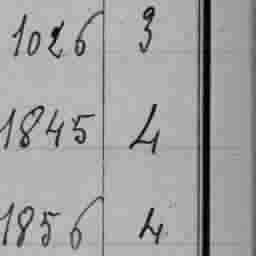 1026 3
1845 4
1856 4